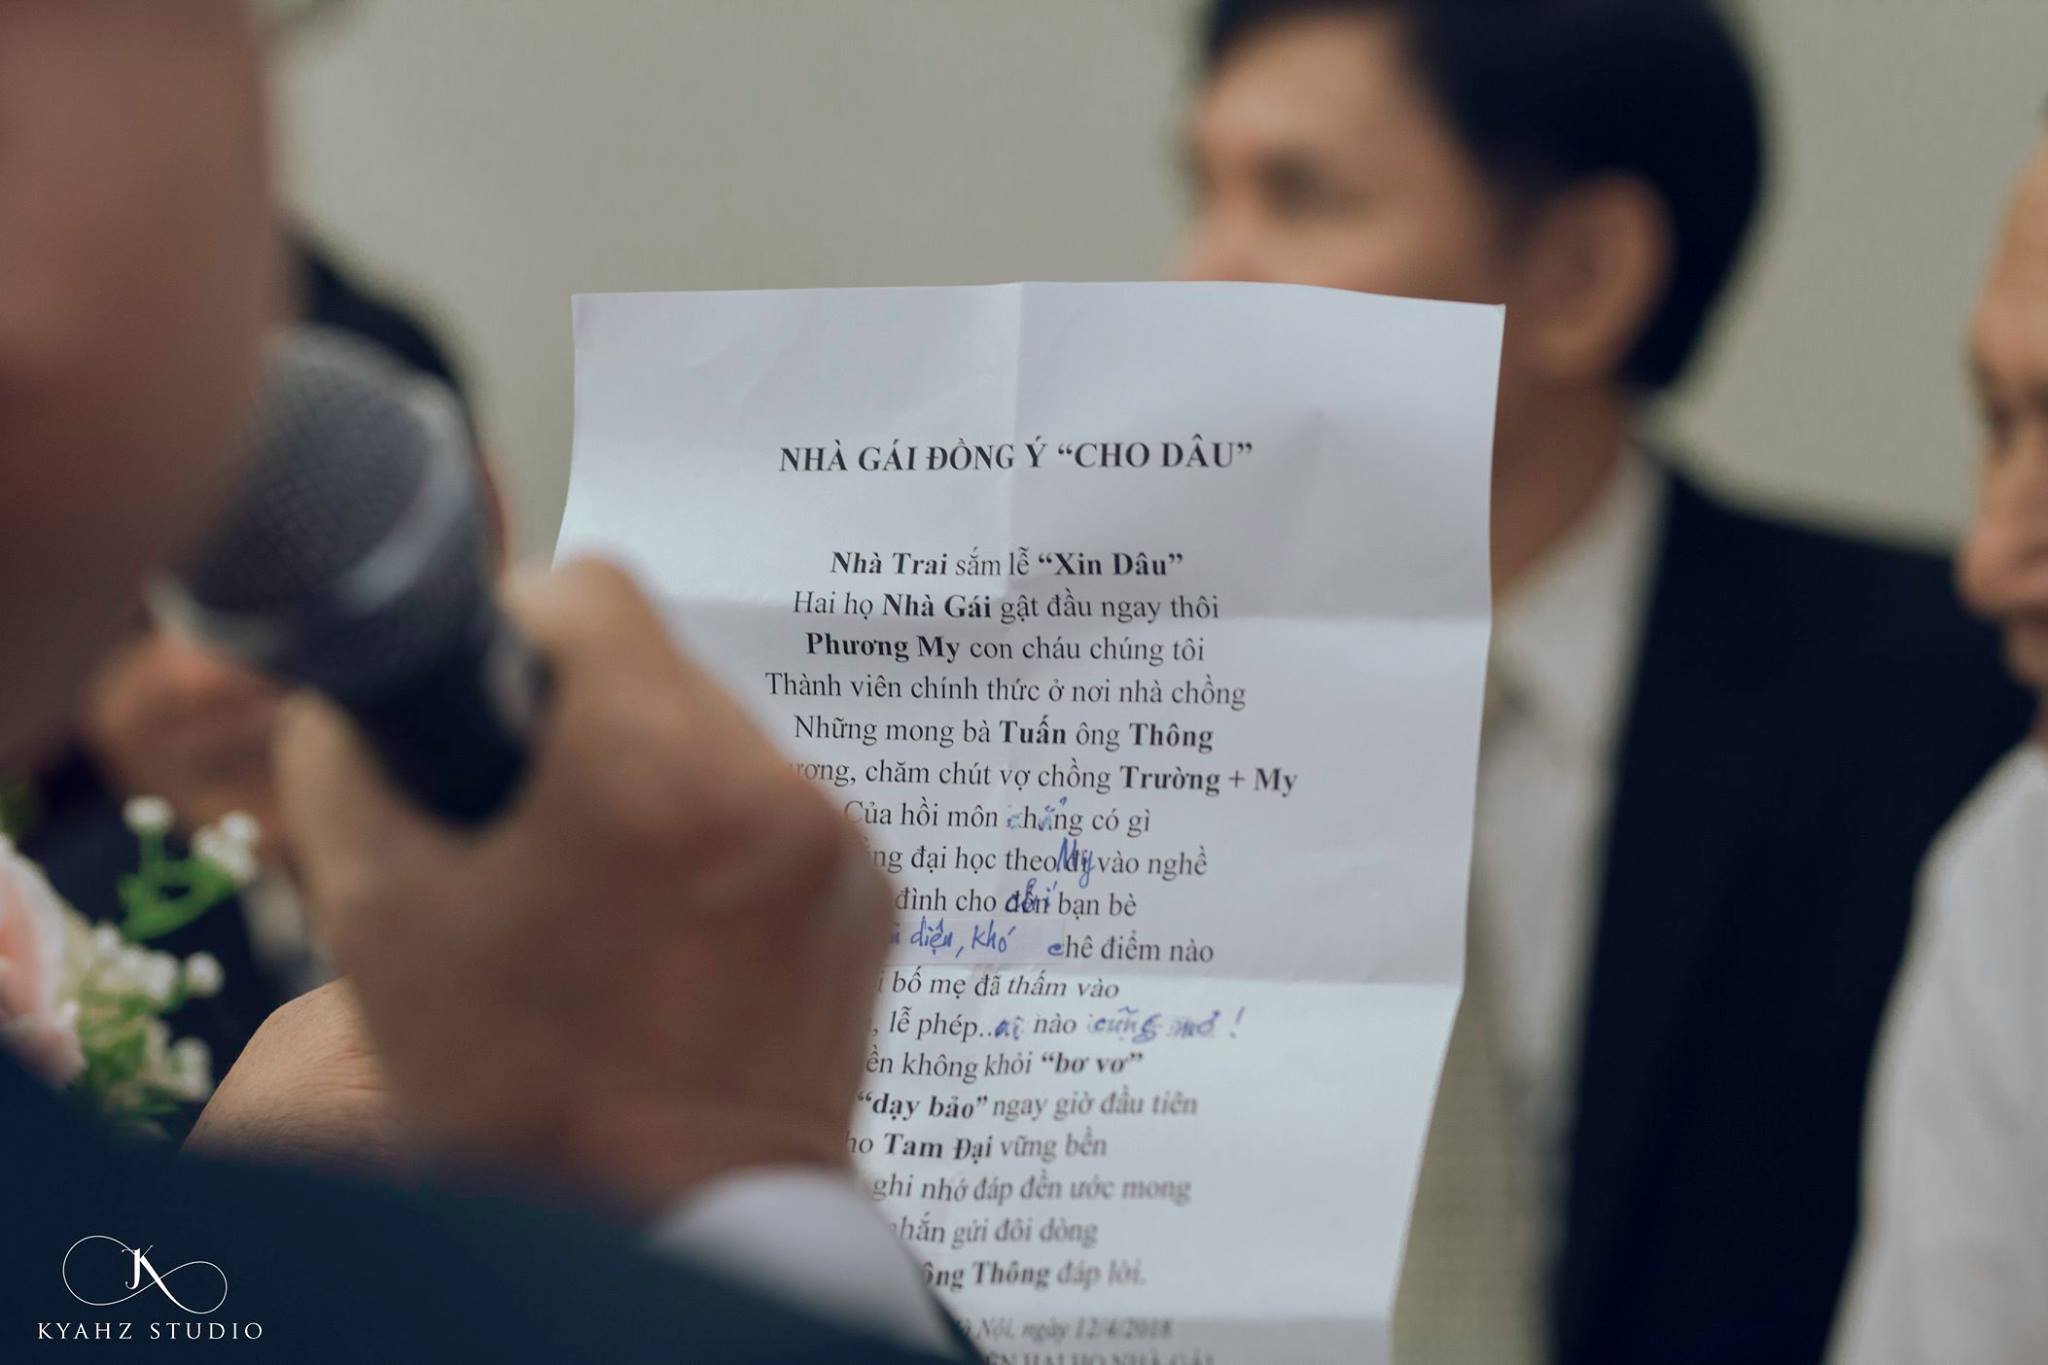 NHÀ GÁI ĐỒNG Ý “CHO DÂU”
Nhà Trai sắm lễ “Xin Dâu”
Hai họ Nhà Gái gật đầu ngay thôi
Phương My con cháu chúng tôi
Thành viên chính thức ở nơi nhà chồng
Những mong bà Tuấn ông Thông
chăm chút vợ chồng Trường + My
Của hồi môn chẳng có gì
đại học theo My vào nghề
đình cho bạn bè
diện, khó chê điểm nào
bố mẹ đã thấm vào
lễ phép.. nào cũng
không khỏi “bơ vơ”
“dạy bảo” ngay giờ đầu tiên
Tam Đại vững bền
ghi nhớ đáp đền ước mong
nhắn gửi đôi dòng
ông Thông đáp lời.
Nội, ngày 12/4/2018
HAI HỌ NHÀ GÁI
JK
KYAHZ STUDIO